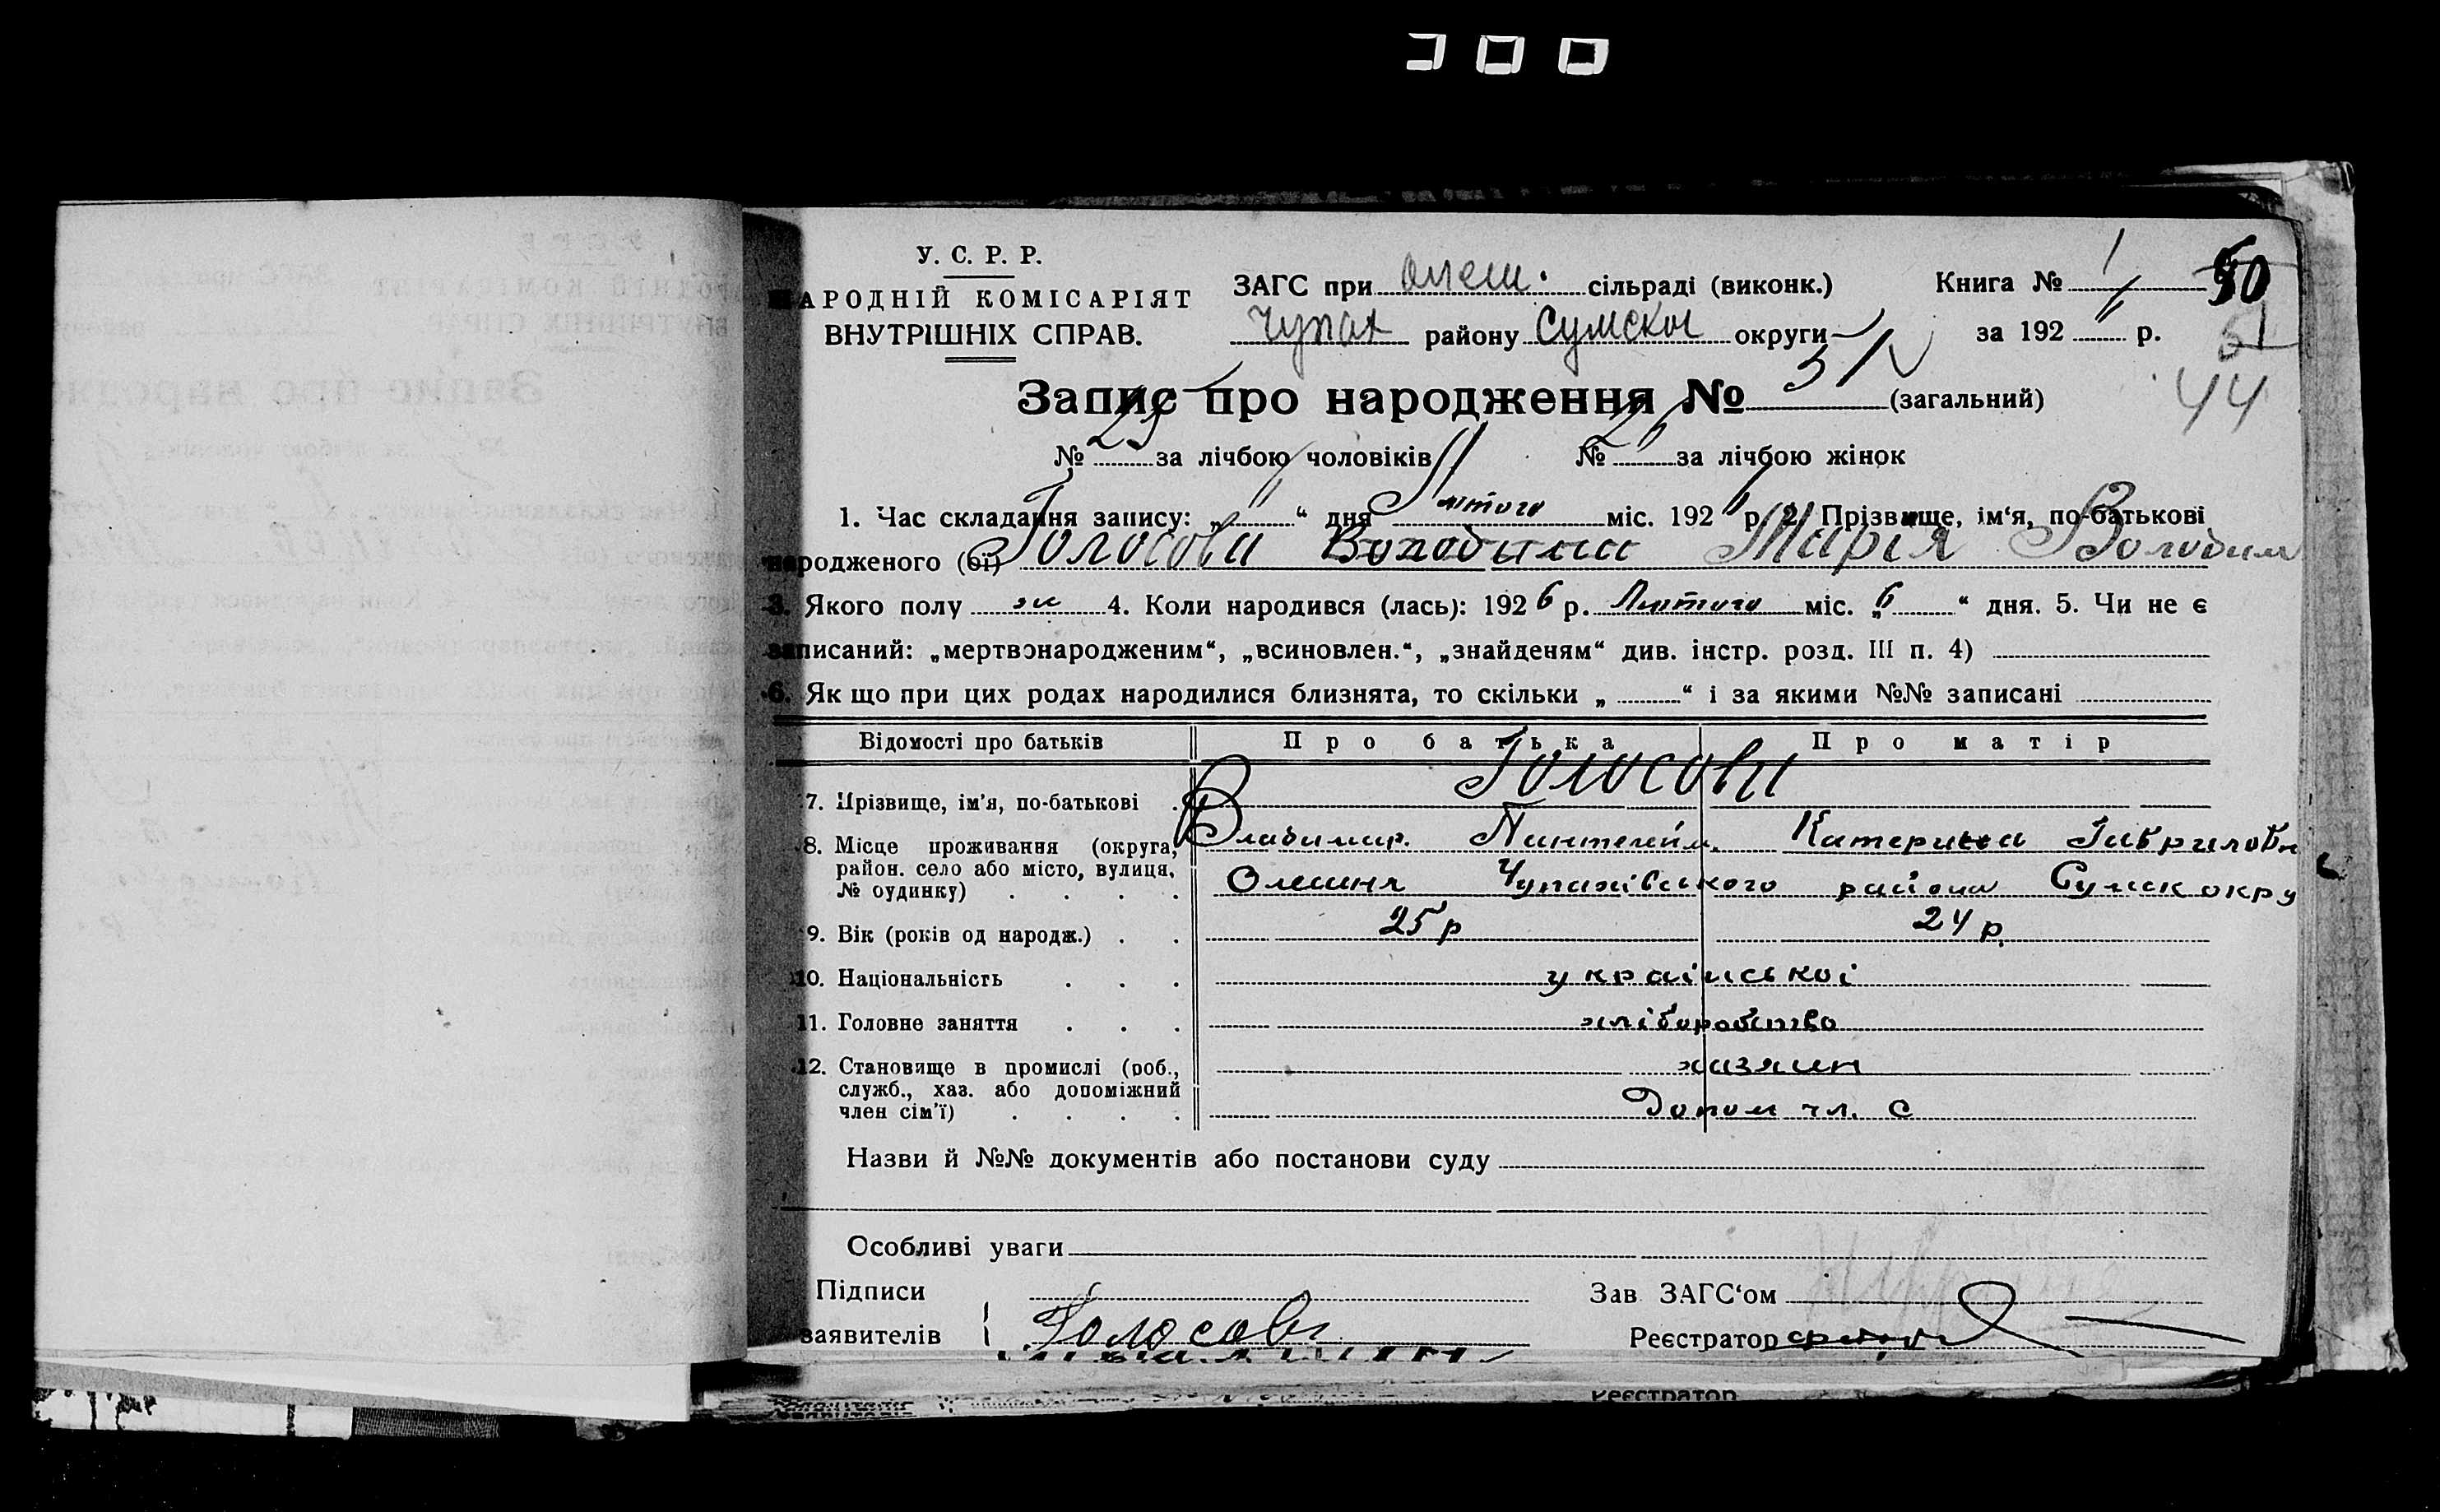 У. С. Р. Р.
НАРОДНІЙ КОМІСАРІЯТ
ВНУТРІШНІХ СПРАВ.
ЗАГС при Олеш. сільраді (виконк.)
Чупах району Сумськ округи
Книга № 1
за 192 6 р.
50
51
44
Запис про народження № 51 (загальний)
№ 25 за лічбою чоловіків № 26 за лічбою жінок
1. Час складання запису: „ 11 “ дня Лютого міс. 192 6 р. 2. Прізвище, ім‘я, по-батькові
народженого (ої) Голосова Марія Володим
3. Якого полу ж 4. Коли народився (лась): 192 6 р. Лютого міс. „ 6 “ дня. 5. Чи не є
записаний: „мертвонародженим“, „всиновлен.“, „знайденям“ див. інстр. розд. III п. 4)
6. Як що при цих родах народилися близнята, то скільки „ “ і за якими №№ записані
Відомості про батьків Про батька Про матір
7. Прізвище, ім'я, по-батькові Голосови
Владимир. Пантелейм. Катерина Гавриловн
8. Місце проживання (округа, район. село або місто, вулиця, № будинку) Олешня Чупахівського району Сумск окру
9. Вік (років од народж.) 25 р 24 р.
10. Національність української
11. Головне заняття хліборобство
12. Становище в промислі (роб., служб., хаз. або допоміжний член сім'ї) хазяин
Допом чл. с
Назви й №№ документів або постанови суду
Особливі уваги
Підписи
заявителів Голосов
Зав ЗАГС‘ом
Реєстратор
Реєстратор